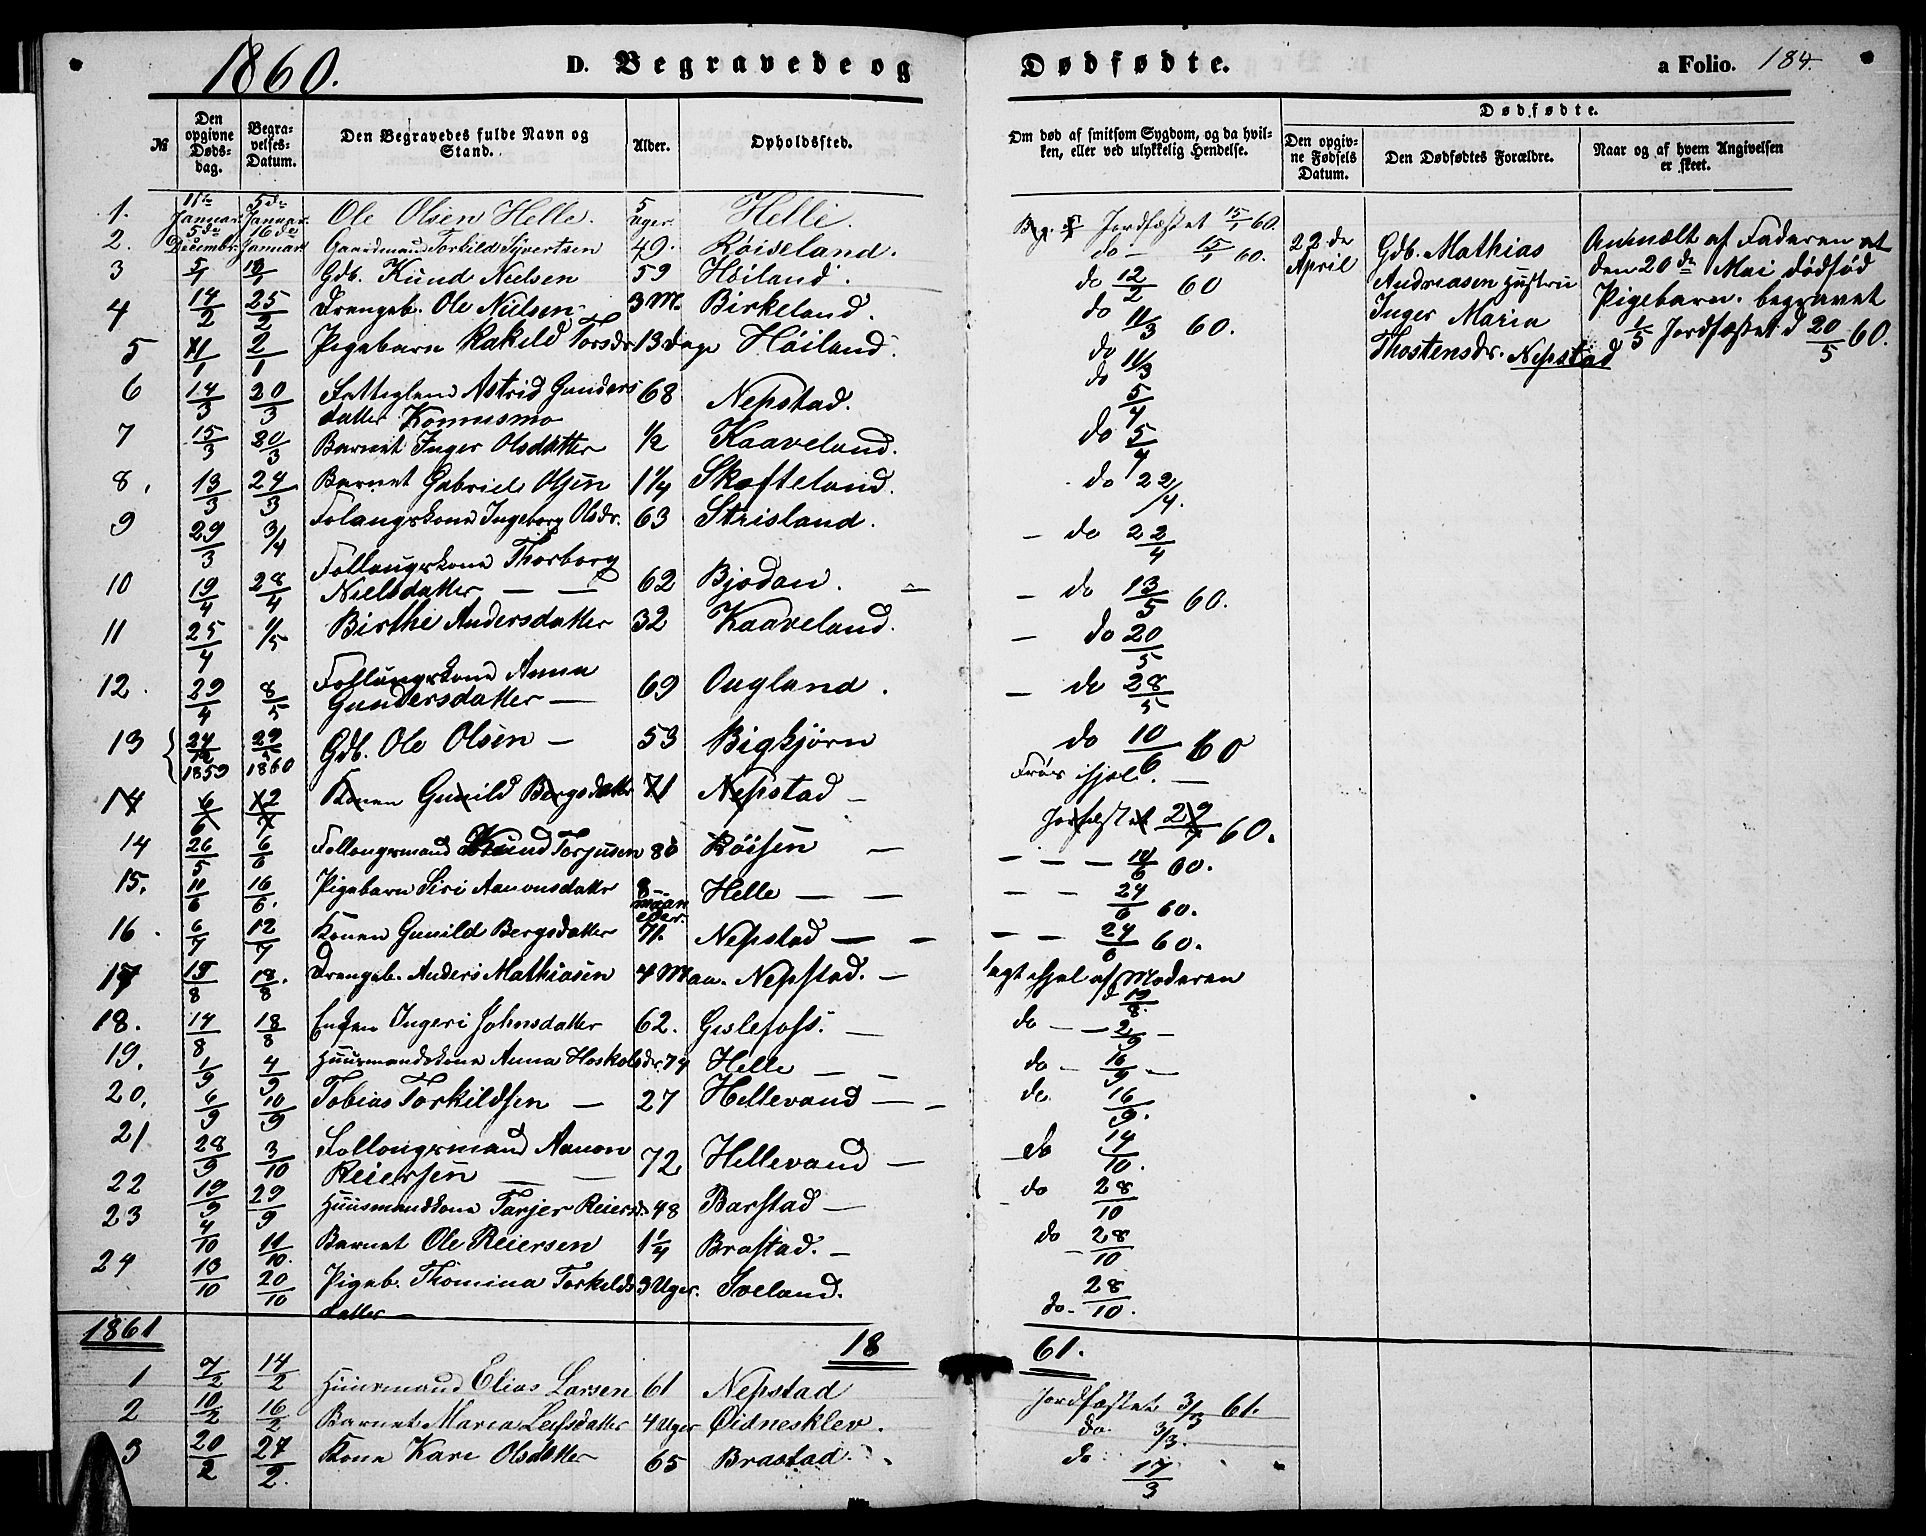 1860. D. Begravede og Dødfødte. a Folio. 184.
No
Den opgivne Døds-dag.
Begra-velses-Datum.
Den Begravedes fulde Navn og Stand.
Alder.
Opholdssted.
Om død af smitsom Sygdom, og da hvil-ken, eller ved ulykkelig Hendelse.
Dødfødte.
Den opgiv-ne Fødsels Datum.
Den Dødfødtes Forældre.
Naar og af hvem Angivelsen er skeet.
1. Januar. 5de Januar. Ole Olsen Helle. 5 Uger. Helle. Jordfæstet 15/1 60.
2. 5de Decembr. 16de Januar Gaardmand Torkild Syvertsen 49. Røiseland. do — 15/1 60.
3 5/1 18/1 Gdb. Knud Nielsen 59 Høiland. do 12/2 60
4 14/2 25/2 Drengeb. Ole Nielsen 3 M. Birkeland. do 11/3 60.
5 2/1 Pigebarn Rakeld Torsdr. 13 Dage Høiland. do 11/3
6 14/3 20/3 Fattiglem Astrid Gunders
datter Konnesmo 68 Nepstad. do 5/4
7 15/3 20/3 Barnet Inger Olsdatter 1/2 Kaaveland. do 5/4
8. 13/3 24/3 Barnet Gabriel Olsen 1 1/4 Skofteland. do 22/4.
9 29/3 3/4 Folangskone Ingeborg Olsdr. 63 Strisland. — do 22/4
10 19/4 28/4 Follaugskone Thorborg
Nielsdatter — — 62 Bjodan. — do 13/5 60.
11 25/4 1/5 Birthe Andersdatter 32 Kaaveland. — do 20/5
12. 29/4 8/5 Follaugskone Anna
Gundersdatter — 69 Ougland. — do 28/5
13 24/12 1859 29/5 1860 Gdb. Ole Olsen — 53 Bigkjørn do 10/6 60
Frøs ihjel. —
14 6/6 12/7 Konen Gunild Bergsdatter 71 Nepstad — Jordfæstet 29/7 60.
14 26/5 6/6 Follougsmand Knud Torjusen 80 Røisen — — — — 10/6 60.
15. 11/6 16/6. Pigebarn Siri Aanonsdatr 8 — maaneder. Helle — — — — 24/6 60.
16. 6/7 12/7 Konen Gunild Bergsdatter 71. Nepstad — — — — 24/6 60.
17 15/8 18/8. Drengeb. Anders Mathiasen 4 Maa. Nepstad. — lagt ihjel af Moderen
d 19/8.
18. 14/8 18/8 Enken Ingeri Johnsdatter 62. Gislefoss. — do — — 2/9 —
19. 1/9 4/9 Huusmandskone Anna Hoskoldsdr. 74 Helle — — do — 16/9 —
20. 6/9 10/9 Tobias Torkildsen — 27 Hellevand — — do. 16/9.
21 28/9 3/10 Follougsmand Aanon
Reiersen — — 72 Hellevand — — do 14/10.
22 19/9 29/9 Huusmandkone Tarjer Reiersd. 48 Barstad — do 28/10
23 4/10 11/10. Barnet Ole Reiersen 1 1/4 Brastad. — do — 28/10
24 13/10 20/10 Pigeb. Thomina Torkelds
datter — 3 Uger. Sveland. do. 28/10.
22de April
Gdb. Mathias
Andreasen Hustru
Inger Maria
Thostensdr. Nepstad
Anmeldt af Faderen at
den 20de Mai dødfød
Pigebarn. begravet
1/5 Jordfæstet d 20/5 60.
1861 18 61.
1 7/2 14/2 Huusmand Elias Larsen 61 Nepstad Jordfæstet 3/3 61.
2 10/2 16/2 Barnet Maria Leifsdatter 4 Uger Øidnesklev. do. 3/3.
3 20/2 27/2. Kone Kari Olsdatter 65 Brastad. do. 17/3